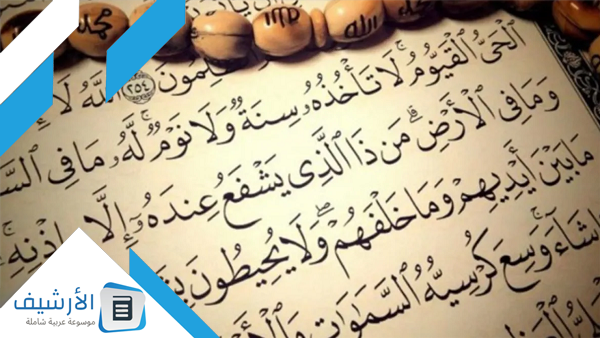 محمد
الله
٢٥٤ ٱللَّهُ لَآ
ٱلْحَىُّ ٱلْقَيُّومُ ۚ لَا تَأْخُذُهُۥ سِنَةٌ وَلَا نَوْمٌ ۚ لَّهُۥ مَا فِى
وَمَا فِى ٱلْأَرْضِ ۗ مَن ذَا ٱلَّذِى يَشْفَعُ عِندَهُۥٓ إِلَّا بِإِذْنِهِۦ ۚ
مَا بَيْنَ أَيْدِيهِمْ وَمَا خَلْفَهُمْ ۖ وَلَا يُحِيطُونَ
شَآءَ ۚ وَسِعَ كُرْسِيُّهُ ٱلسَّمَٰوَٰتِ
الأرشيف
موسوعة عربية شاملة